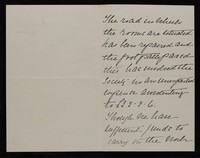 The road in which
the rooms are situated
has been repaired and
the foot path paved
this has involved the
Society in an unexpected
expense amounting
to £3-3-6.
Though we have
sufficient funds to
carry on the work